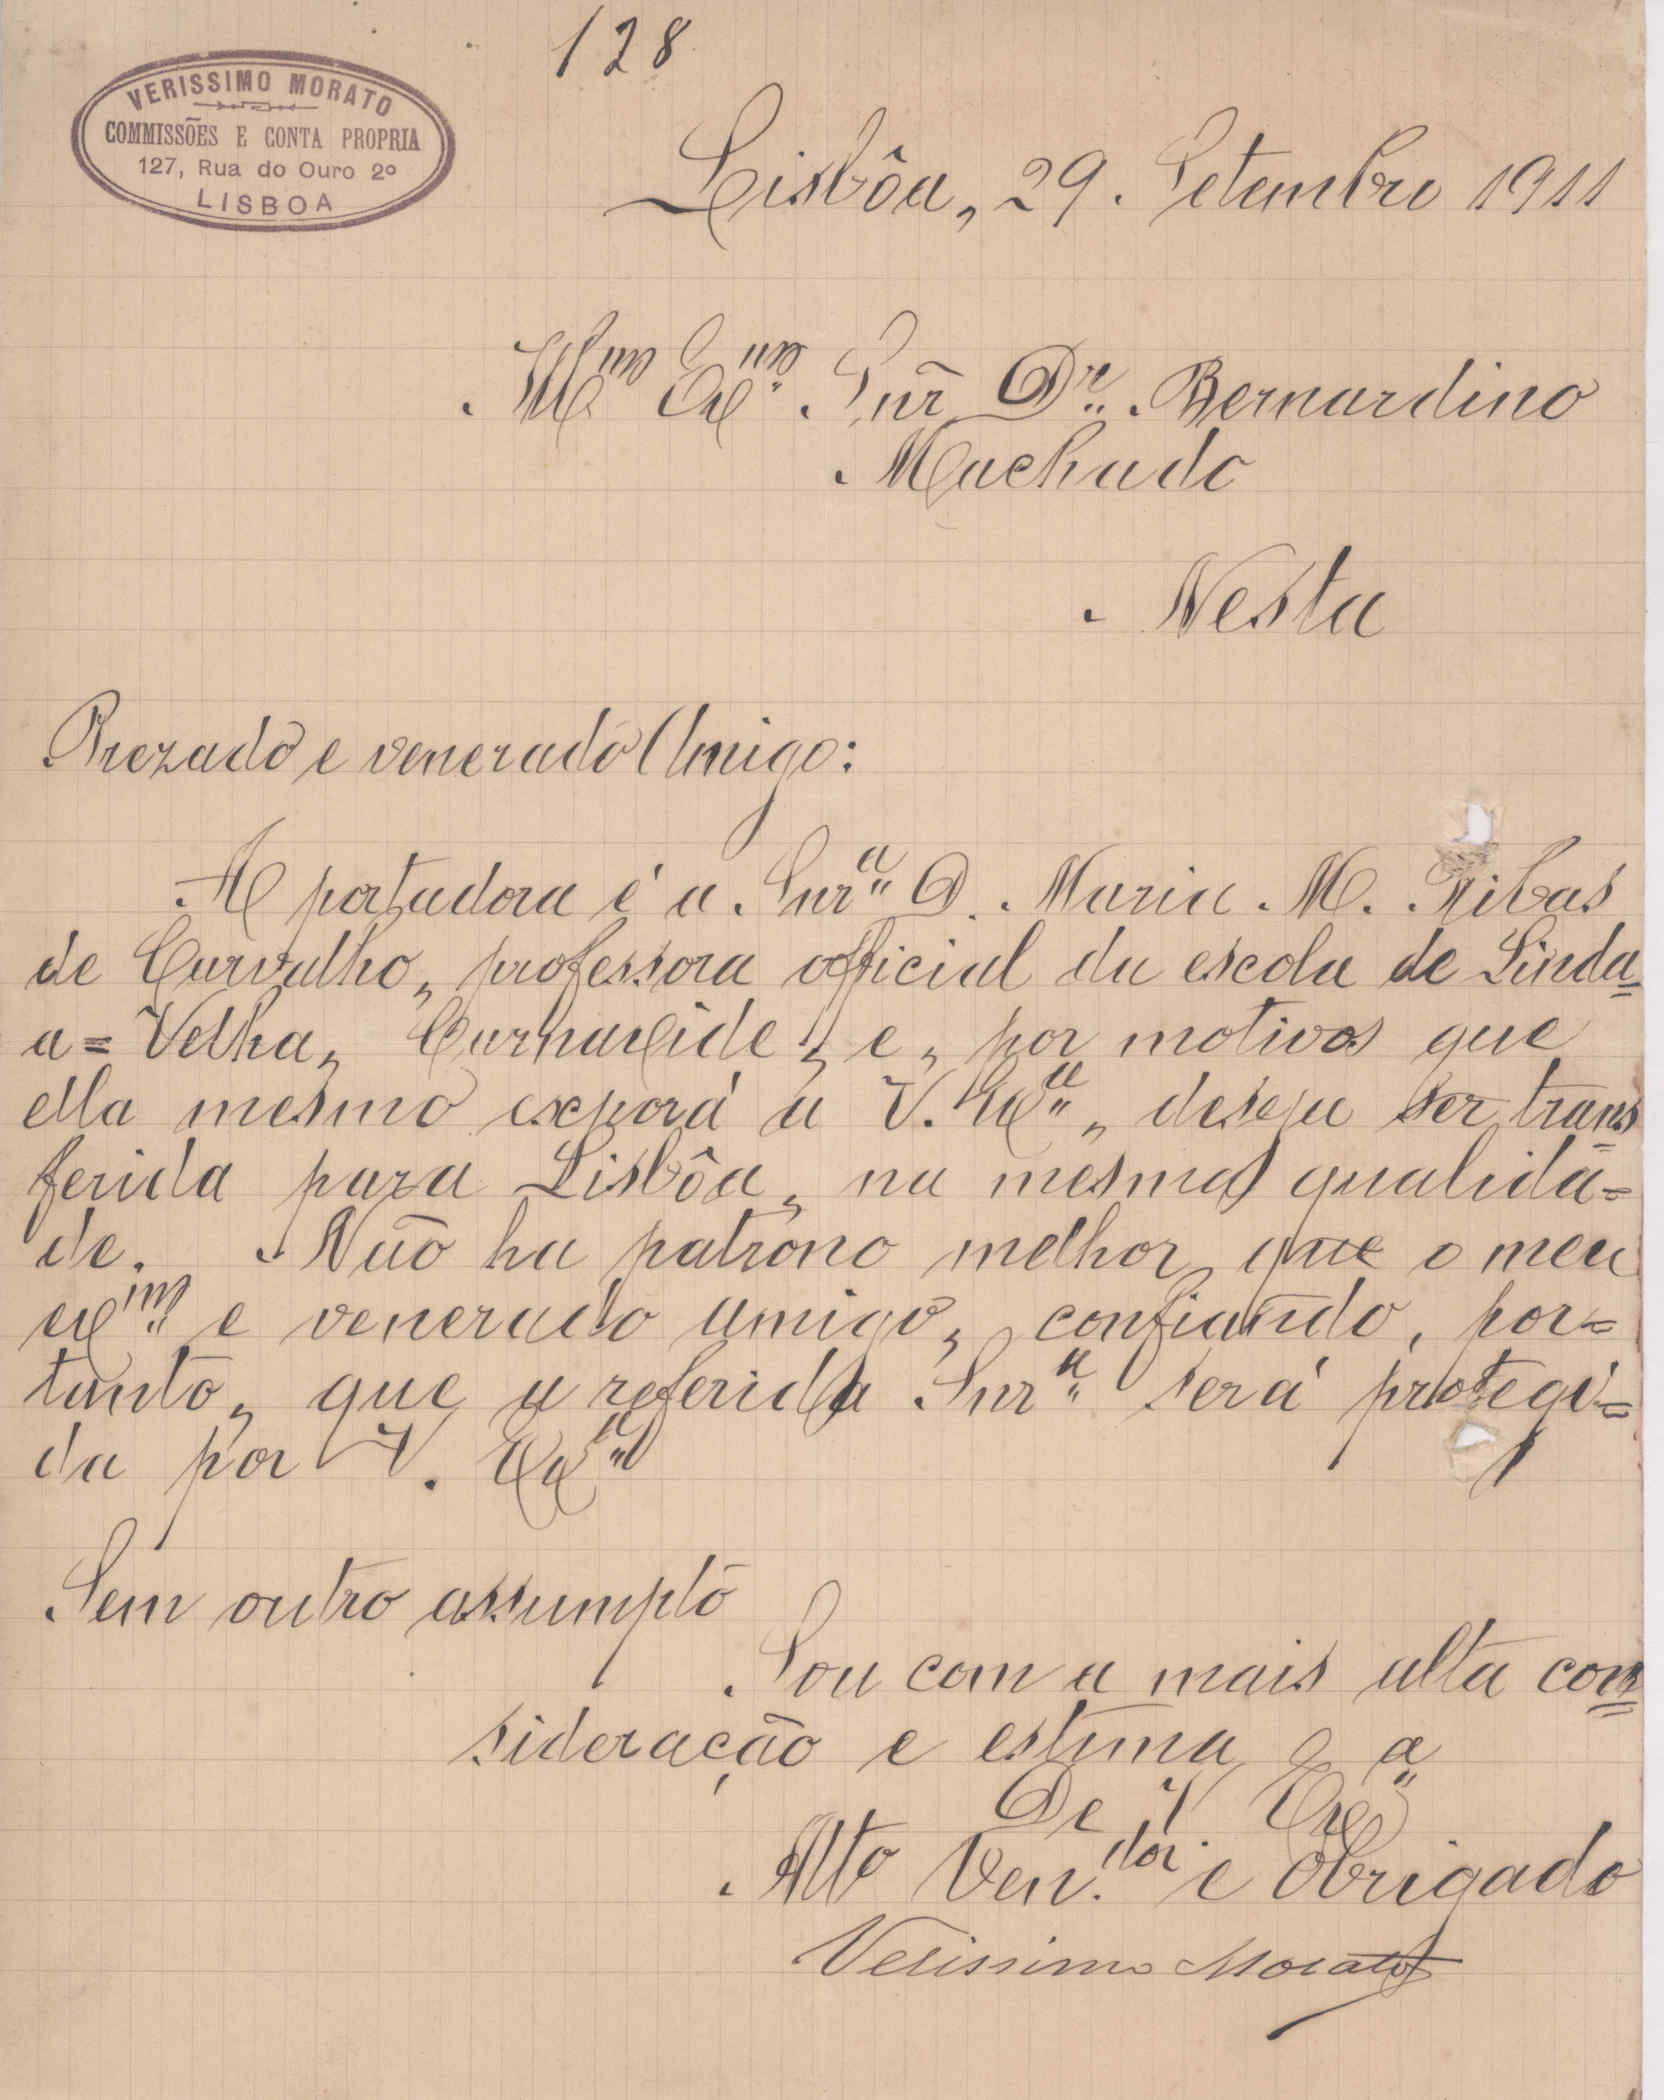 128
VERISSIMO MORATO
COMMISSÕES E CONTA PROPRIA
127, Rua do Ouro 2º
LISBOA
Lisbôa, 29. Setembro 1911
Illmo Exmo. Snr̃ Dr. Bernardino
Machado
Nesta
Prezado e venerado Amigo:
A portadora é a Snra D. Maria M. Ribas
de Carvalho, professora official da escola de Linda=
a=Velha, Carnaxide, e, por motivos que
ella mesmo exporá a V. Exa, deseja ser trans=
ferida para Lisbôa, na mesma qualida=
de. Não ha patrono melhor que o meu
exmo e venerado amigo, confiando, por=
tanto, que a referida Snra será protegi=
da por V. Exa
Sem outro assumpto
Sou com a mais alta con=
sideração e estima
De V Exa
Atto Ven.dor e Obrigado
Verissimo Morato